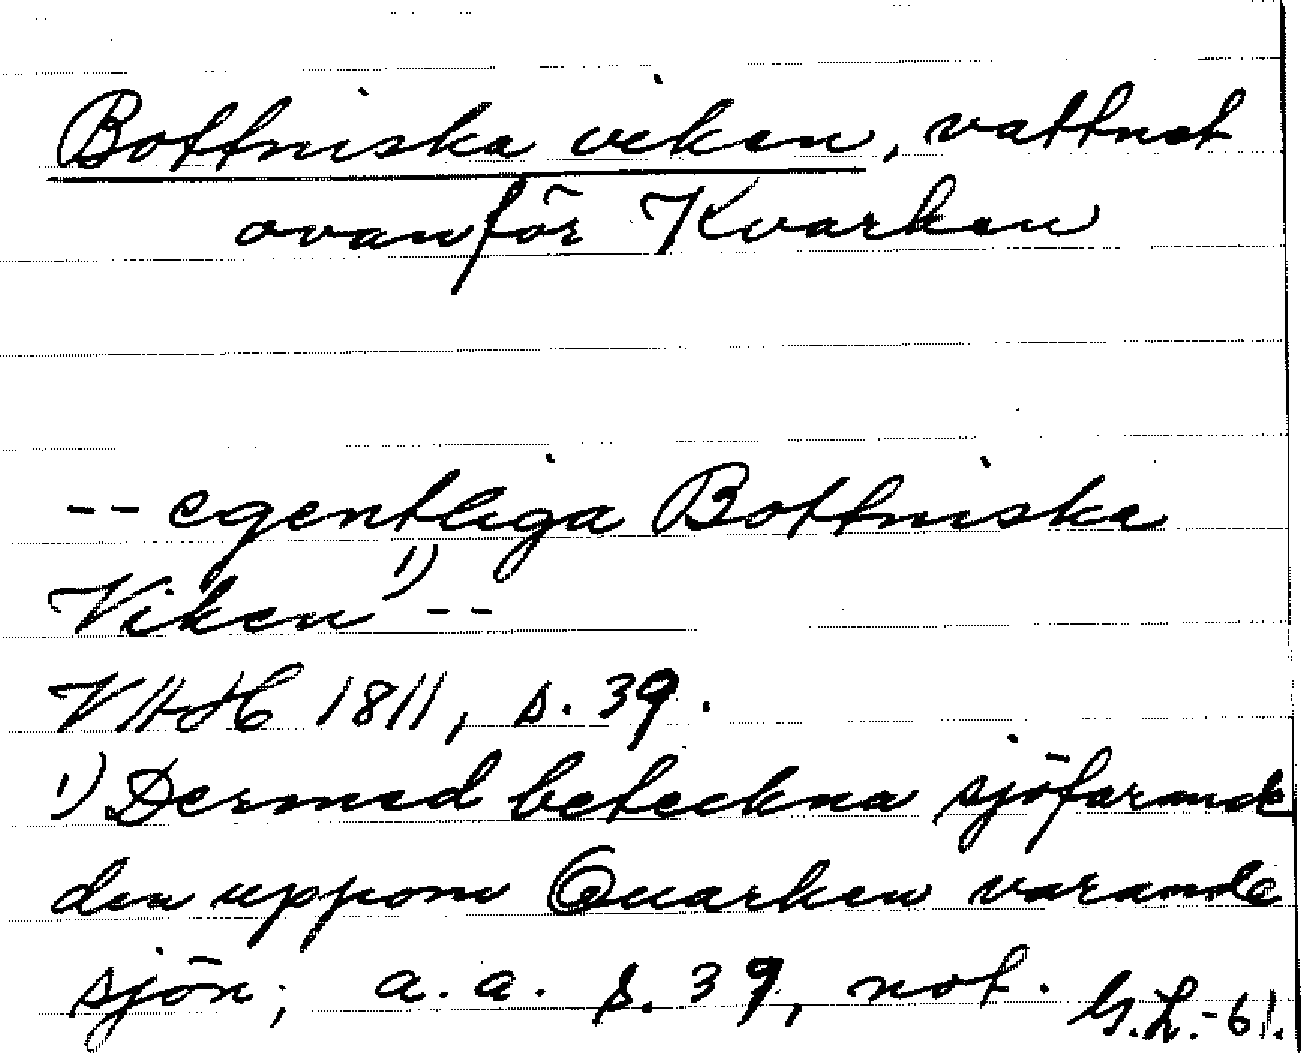 Bottniska viken, vattnet
ovanför Kvarken
-- egentliga Bottniska
Viken 1) --
VAH 1811, s. 39.
1) Dermed beteckna sjöfarande
den uppom Quarken varande
sjön; a. a. s. 39, not. G.L.-61.